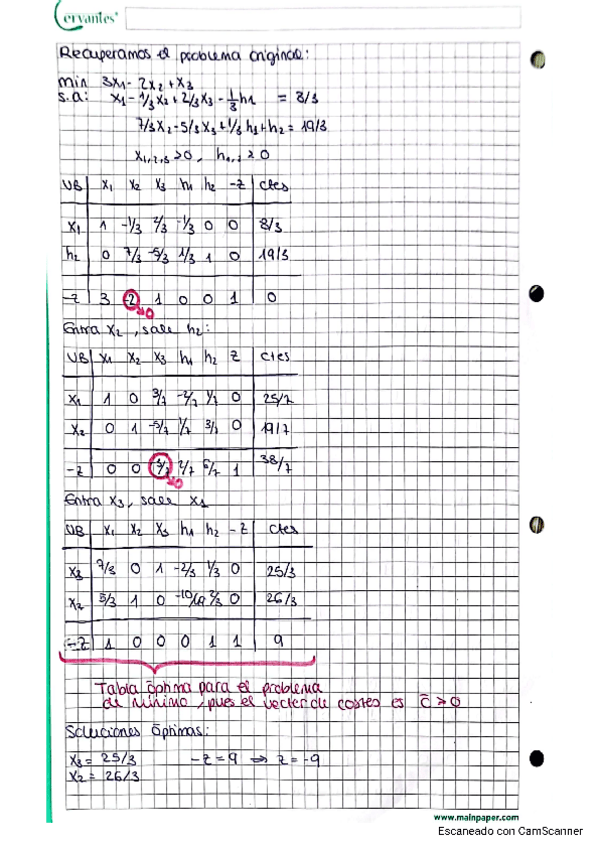 Cervantes
Recuperamos el problema original:
min 3x1 - 2x2 + x3
s.a: x1 - 1/3x2 + 2/3x3 - 1/3h1 = 8/3
7/3x2 - 5/3x3 + 1/3h1 + h2 = 19/3
x1,2,3 ≥ 0, h1,2 ≥ 0
VB x1 x2 x3 h1 h2 -z ctes
x1 1 -1/3 2/3 -1/3 0 0 8/3
h2 0 7/3 -5/3 1/3 1 0 19/3
-z 3 -2 1 0 0 1 0
<0
Entra x2, sale h2:
VB x1 x2 x3 h1 h2 z ctes
x1 1 0 3/7 -2/7 1/7 0 25/7
x2 0 1 -5/7 1/7 3/7 0 19/7
-z 0 0 2/7 6/7 1 38/7
<0
Entra x3, sale x1
VB x1 x2 x3 h1 h2 -z ctes
x3 7/3 0 1 -2/3 1/3 0 25/3
x2 5/3 1 0 2/3 0 26/3
-z 1 0 0 0 1 1 9
Tabla óptima para el problema
de mínimo, pues el vector de costes es c̄ ≥ 0
Soluciones óptimas:
x3 = 25/3 -z = 9 ⇒ z = -9
x2 = 26/3
www.mainpaper.com
Escaneado con CamScanner